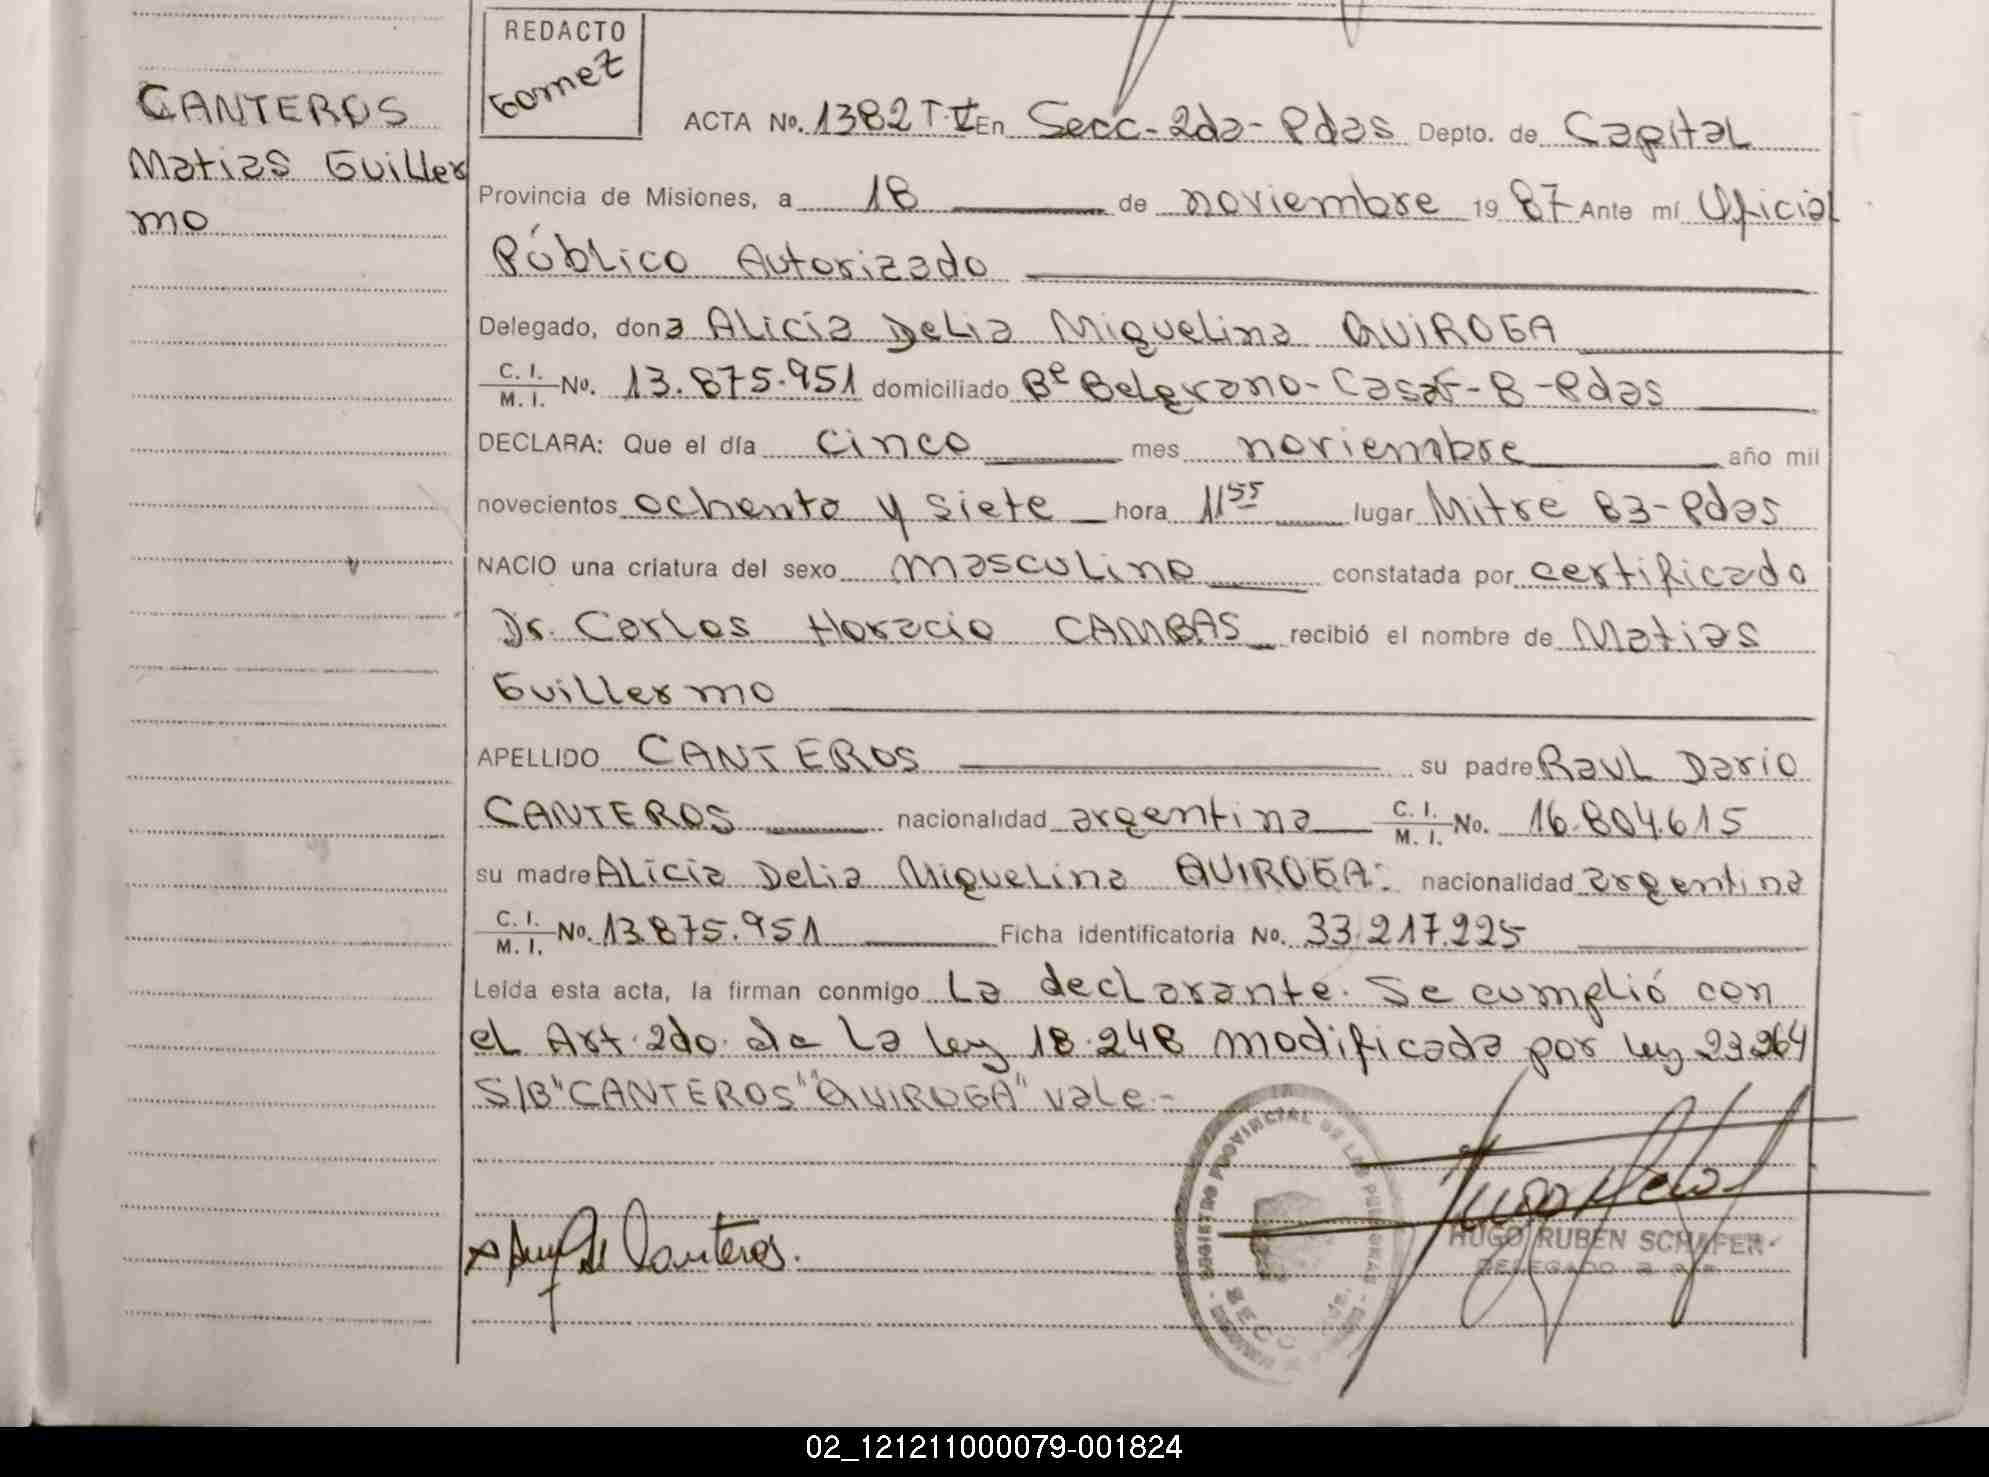 REDACTO
Gomez
CANTEROS
Matias Guiller
mo
ACTA No. 1382 T. V En Secc - 2da - Pdas Depto. de Capital
Provincia de Misiones, a 18 de noviembre 19 87 Ante mí Oficial
Público Autorizado
Delegado, dona Alicia Delia Miquelina QUIROGA
C. I. / M. I. No. 13.875.951 domiciliado Bº Belgrano - Casa - 8 - Pdas
DECLARA: Que el día cinco mes noviembre año mil
novecientos ochenta y siete hora 11 55 lugar Mitre 83 - Pdas
NACIO una criatura del sexo masculino constatada por certificado
Dr. Carlos Horacio CAMBAS recibió el nombre de Matias
Guillermo
APELLIDO CANTEROS su padre Raul Dario
CANTEROS nacionalidad argentina C. I. / M. I. No. 16.804.615
su madre Alicia Delia Miquelina QUIROGA nacionalidad argentina
C. I. / M. I. No. 13.875.951 Ficha identificatoria No. 33.217.225
Leida esta acta, la firman conmigo La declarante. Se cumplió con
el Art. 2do. de La Ley 18.248 modificada por Ley 23.264
S/B "CANTEROS" "QUIROGA" vale.-
REGISTRO PROVINCIAL DE LAS PERSONAS
de Canteros.
HUGO RUBEN SCHAFER
DELEGADO
02_121211000079-001824